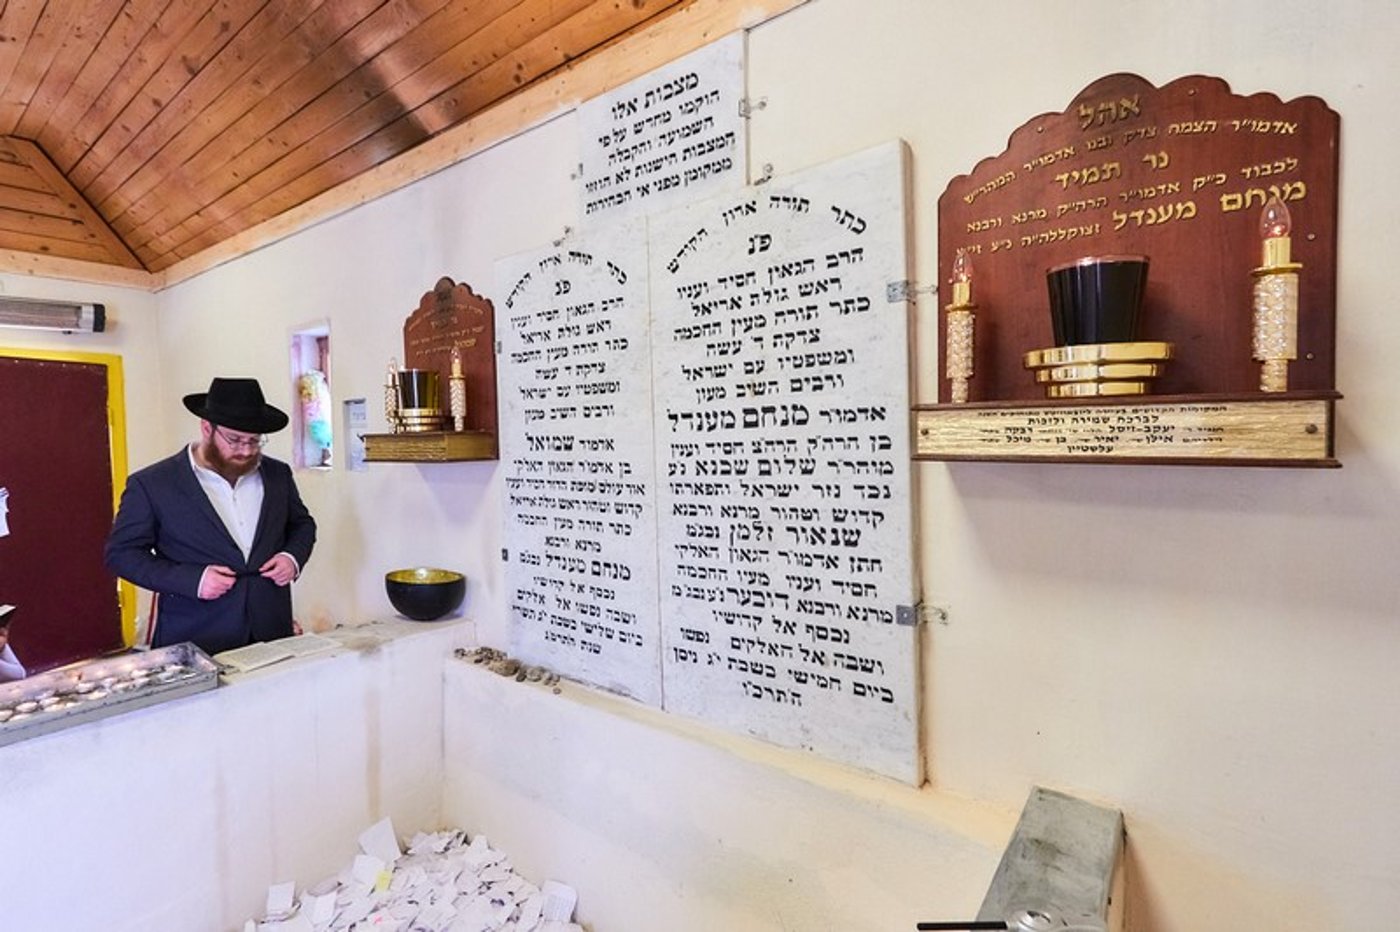 מצבות אלו
הוקמו מחדש על פי
השמועה והקבלה
המצבות הישנות לא הוזזו
ממקומן מפני אי הבהירות
כתר תורה ארון הקודש
פ״נ
הרב הגאון חסיד ועניו
ראש גולת אריאל
כתר תורה מעין החכמה
צדקת ד׳ עשה
ומשפטיו עם ישראל
ורבים השיב מעון
אדמו״ר מנחם מענדל
בן הרה״ק הרה״צ חסיד ועניו
מוהר״ר שלום שכנא נ״ע
נכד נזר ישראל ותפארתו
קדוש וטהור מרנא ורבנא
שניאור זלמן נבג״מ
חתן אדמו״ר הגאון האלקי
חסיד ועניו מעין החכמה
מרנא ורבנא דובער נ״ע נבג״מ
נכסף אל קדישיו
ושבה אל האלקים נפשו
ביום חמישי בשבת י״ג ניסן
ה׳תרכ״ו
כתר תורה ארון הקודש
פ״נ
הרב הגאון חסיד ועניו
ראש גולת אריאל
כתר תורה מעין החכמה
צדקת ד׳ עשה
ומשפטיו עם ישראל
ורבים השיב מעון
אדמור שמואל
בן אדמו״ר הגאון האלקי
אור עולם מופת הדור חסיד ועניו
קדוש וטהור ראש גולת אריאל
כתר תורה מעין החכמה
מרנא ורבנא
מנחם מענדל נבג״ם
נכסף אל קדישיו
ושבה נפשו אל אלקים
ביום שלישי בשבת י״ג תשרי
שנת ה׳תרמ״ג
אהל
אדמו״ר הצמח צדק ובנו אדמו״ר המהר״ש
נר תמיד
לכבוד כ״ק אדמו״ר הרה״ק מרנא ורבנא
מנחם מענדל זצוקללה״ה נ״ע זי״ע
לברכת שמירה וליבות
יעקב-זיסל רבקה
אילן יאיר בן מיכל
עלשטיין